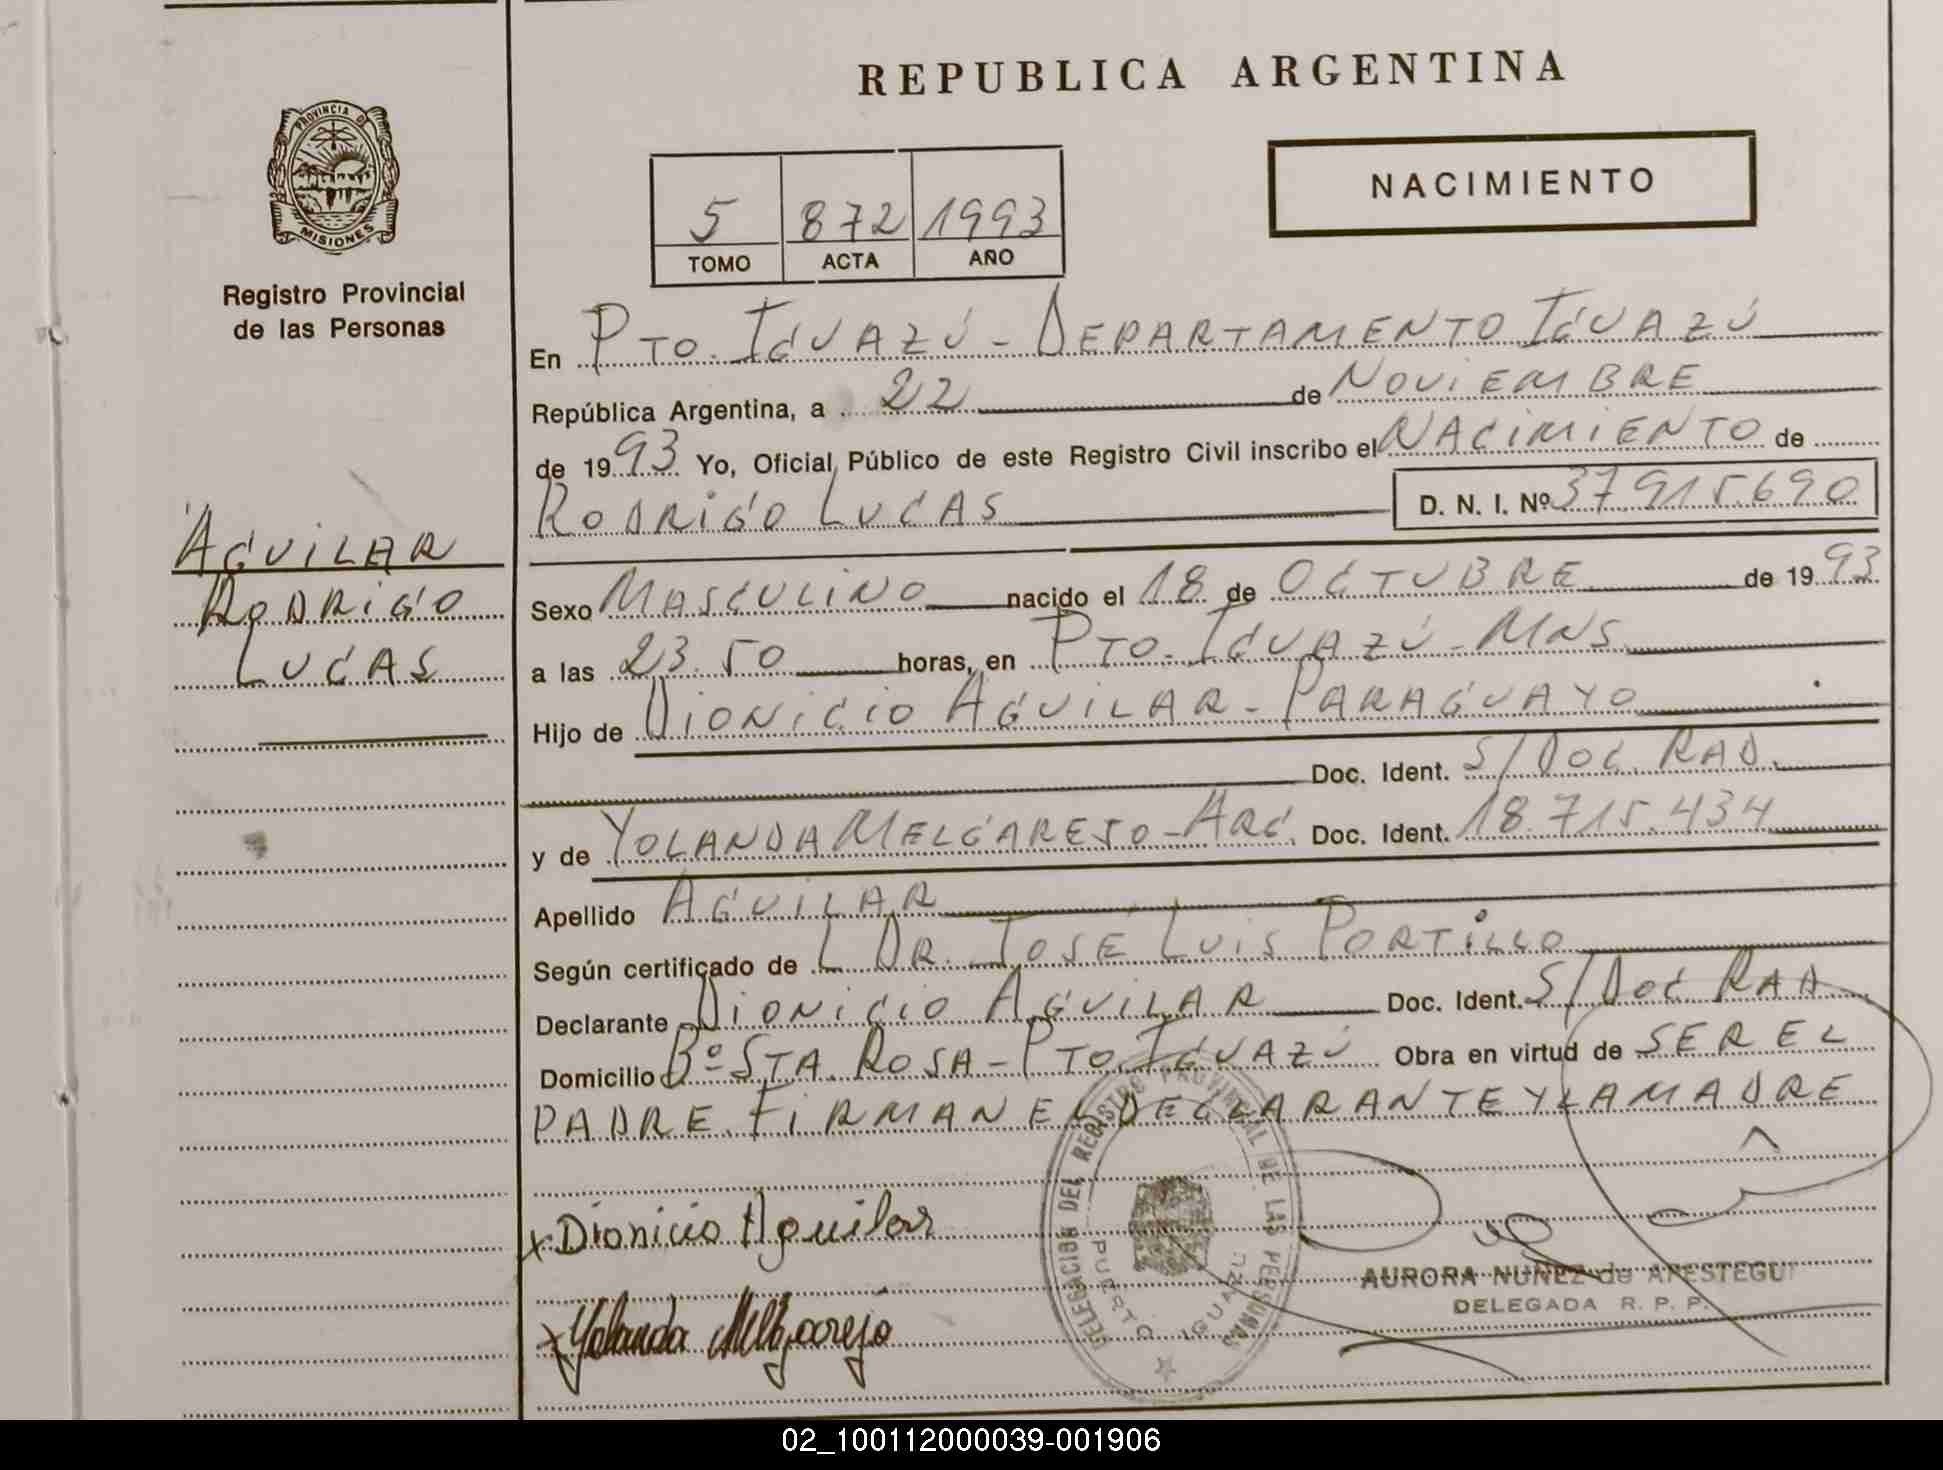 REPUBLICA ARGENTINA
PROVINCIA D
MISIONES
Registro Provincial
de las Personas
NACIMIENTO
5 872 1993
TOMO ACTA AÑO
En PTO. IGUAZÚ - DEPARTAMENTO IGUAZÚ
República Argentina, a 22 de NOVIEMBRE
de 1993 Yo, Oficial Público de este Registro Civil inscribo el NACIMIENTO de
RODRIGO LUCAS D. N. I. Nº 37.915.690
AGUILAR
RODRIGO
LUCAS
Sexo MASCULINO nacido el 18 de OCTUBRE de 1993
a las 23.50 horas, en PTO. IGUAZÚ - MNS.
Hijo de DIONICIO AGUILAR - PARAGUAYO
Doc. Ident. S/DOC. RAD.
y de YOLANDA MELGAREJO - ARG. Doc. Ident. 18.715.434
Apellido AGUILAR
Según certificado de L DR. JOSÉ LUIS PORTILLO
Declarante DIONICIO AGUILAR Doc. Ident. S/DOC RAD.
Domicilio Bº STA. ROSA - PTO. IGUAZÚ Obra en virtud de SER EL
PADRE. FIRMAN EL DECLARANTE Y LA MADRE
x Dionicio Aguilar
x Yolanda Melgarejo
DELEGACION DEL REGISTRO PROVINCIAL DE LAS PERSONAS
PUERTO IGUAZU
AURORA NUÑEZ de APESTEGUI
DELEGADA R. P. P.
02_100112000039-001906